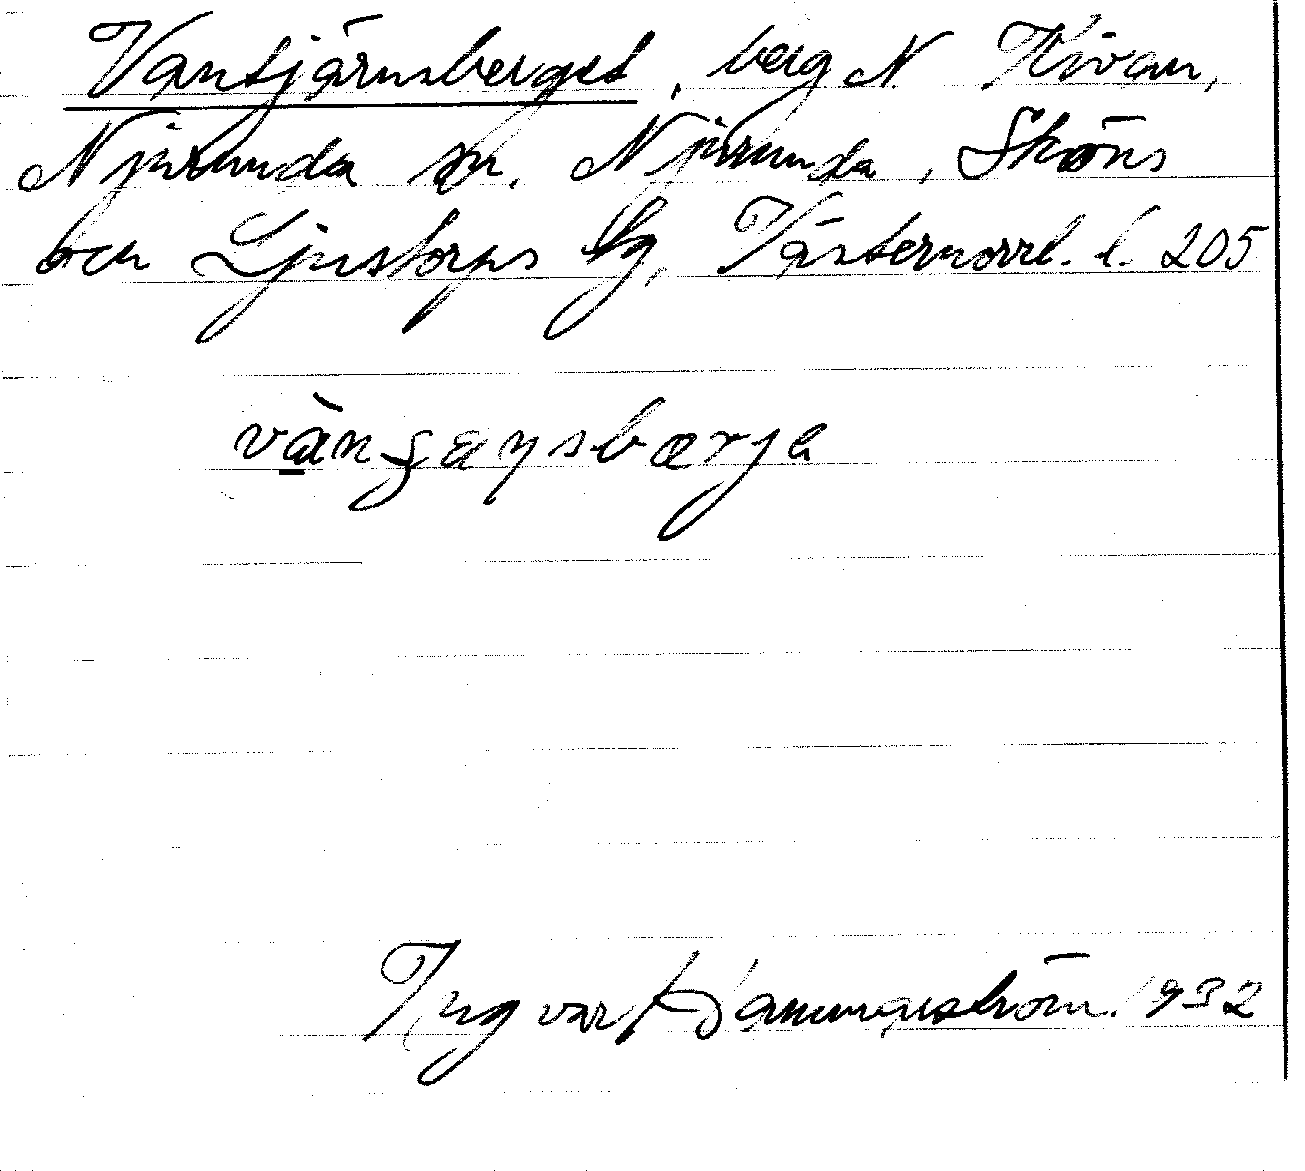 Vantjärnsberget, berg N Kivan,
Njurunda sn. Njurunda, Sköns
och Ljustorps tg, Västernorrl. l. 205
vànʒæɳsbærja
Ingvar Hammarström 1932